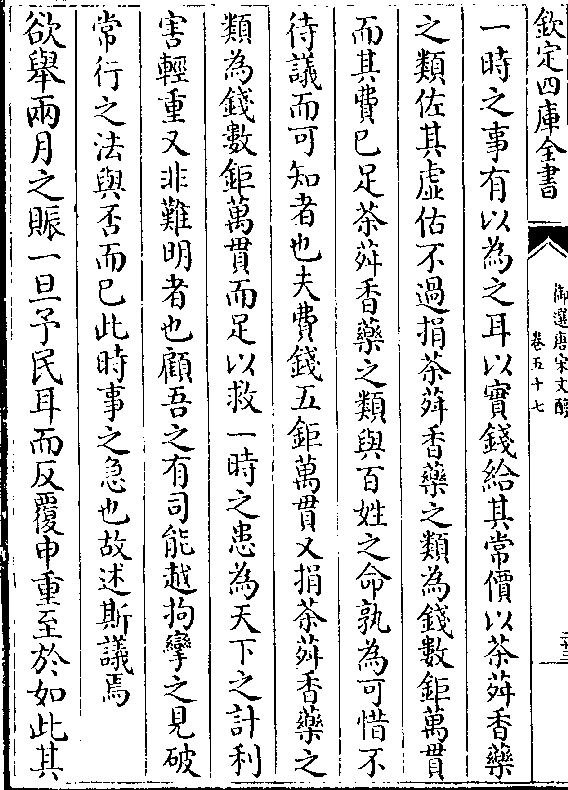 欽定四庫全書
御選唐宋文醇
卷五十七
一時之事有以為之耳以實錢給其常價以茶荈香藥
之類佐其虛估不過捐茶荈香藥之類為錢數鉅萬貫
而其費已足茶荈香藥之類與百姓之命孰為可惜不
待議而可知者也夫費錢五鉅萬貫又捐茶荈香藥之
類為錢數鉅萬貫而足以救一時之患為天下之計利
害輕重又非難明者也顧吾之有司能越拘攣之見破
常行之法與否而已此時事之急也故述斯議焉
欲舉兩月之賑一旦予民耳而反覆申重至於如此其